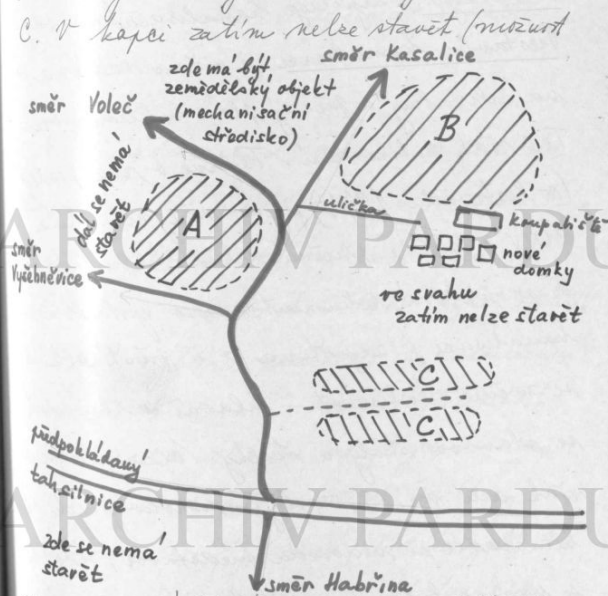 C. V kapci zatím nelze stavět (možnost
směr Kasalice
zde má být
zemědělský objekt
(mechanisační
středisko)
směr Voleč
B
dál se nemá
stavět
A
ulička
koupaliště
nové
domky
směr
Vyšehněvice
ve svahu
zatím nelze stavět
C
C
předpokládaný
tah silnice
zde se nemá
stavět
směr Habřina
ARCHIV PARDU
ARCHIV PARDU